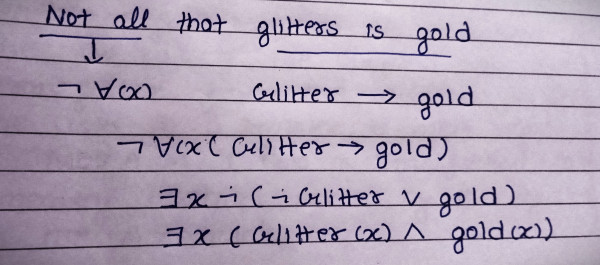 Not all that glitters is gold
¬ ∀(x) Glitter → gold
¬ ∀(x( Glitter → gold)
∃x ¬ (¬ Glitter ∨ gold)
∃x (Glitter (x) ∧ gold(x))